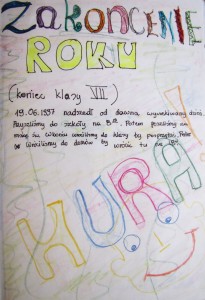 ZAKOŃCZENIE
ROKU
(koniec klasy VII)
19.06.1997 nadszedł od dawna, wyczekiwany dzień.
Poszliśmy do szkoły na 8⁰⁰. Potem poszliśmy na
mszę św. wróciliśmy do klasy by
wróciliśmy do domów by wrócić tu
HURA!